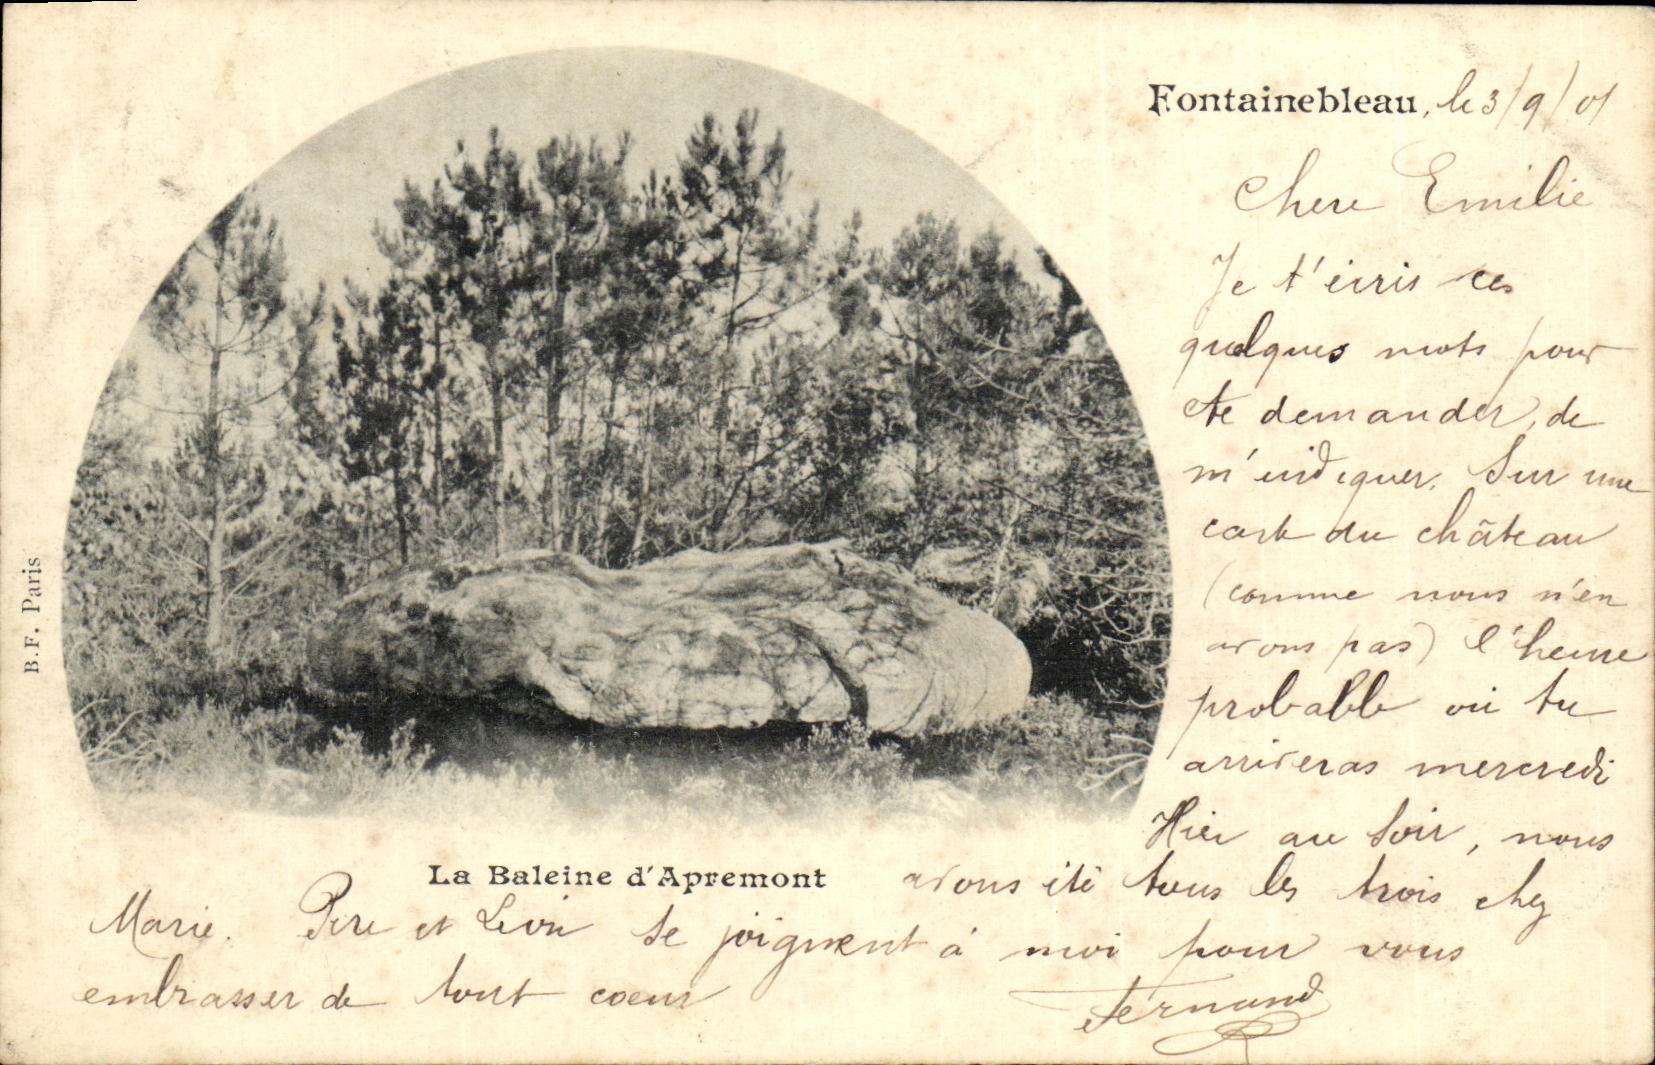 Fontainebleau, le 3/9/01
Chere Emilie
Je t'écris ces
quelques mots pour
te demander, de
m'indiquer. Sur une
carte du château
(comme nous n'en
avons pas) l'heure
probable où tu
arriveras mercredi
Hier au soir, nous
avons été tous les trois chez
Marie. Père et Léon se joignent à moi pour vous
embrasser de tout coeur
Fernand
La Baleine d'Apremont
B.F. Paris